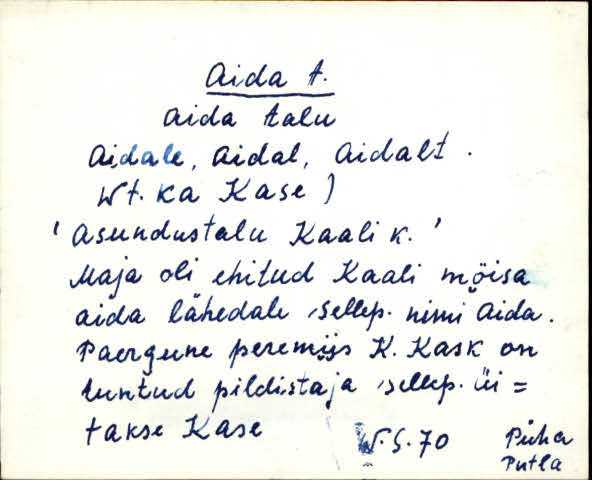 Aida t.
Aida talu
Aidale, Aidal, Aidalt.
Vt. ka Kase)
' Asundustalu Kaali k. '
Maja oli ehitud Kaali mõisa
aida lähedale, sellep. nimi Aida.
Paergune peremjis K. Kask on
tuntud pildistaja, sellep. üi=
takse Kase
70
Püha
Putla